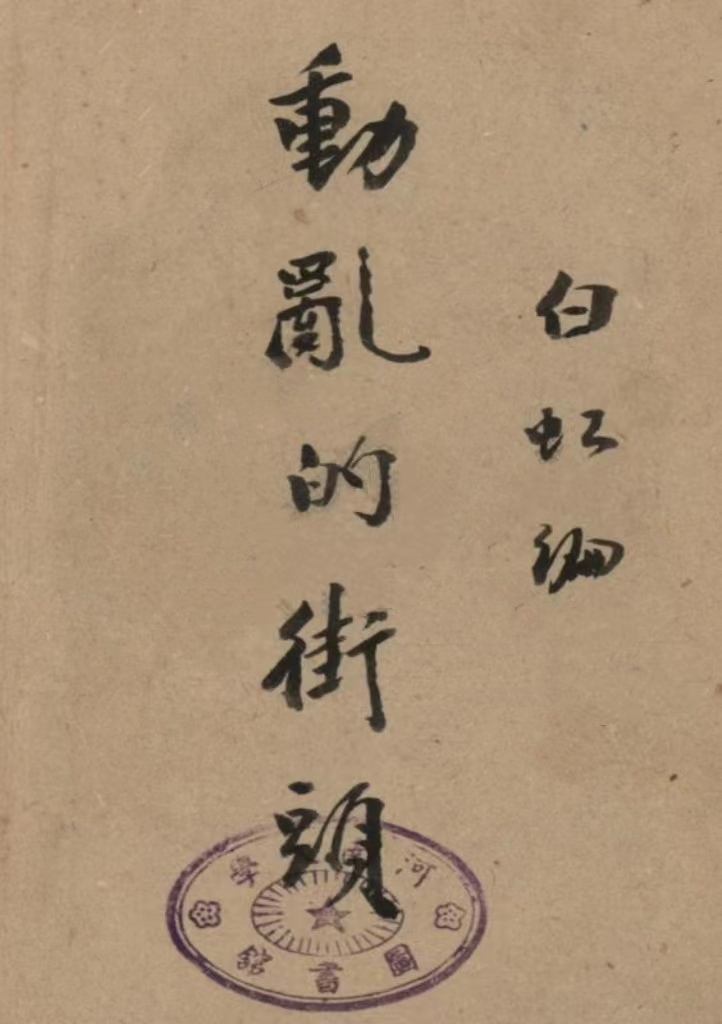 白虹編
動亂的街頭
河
圖書館